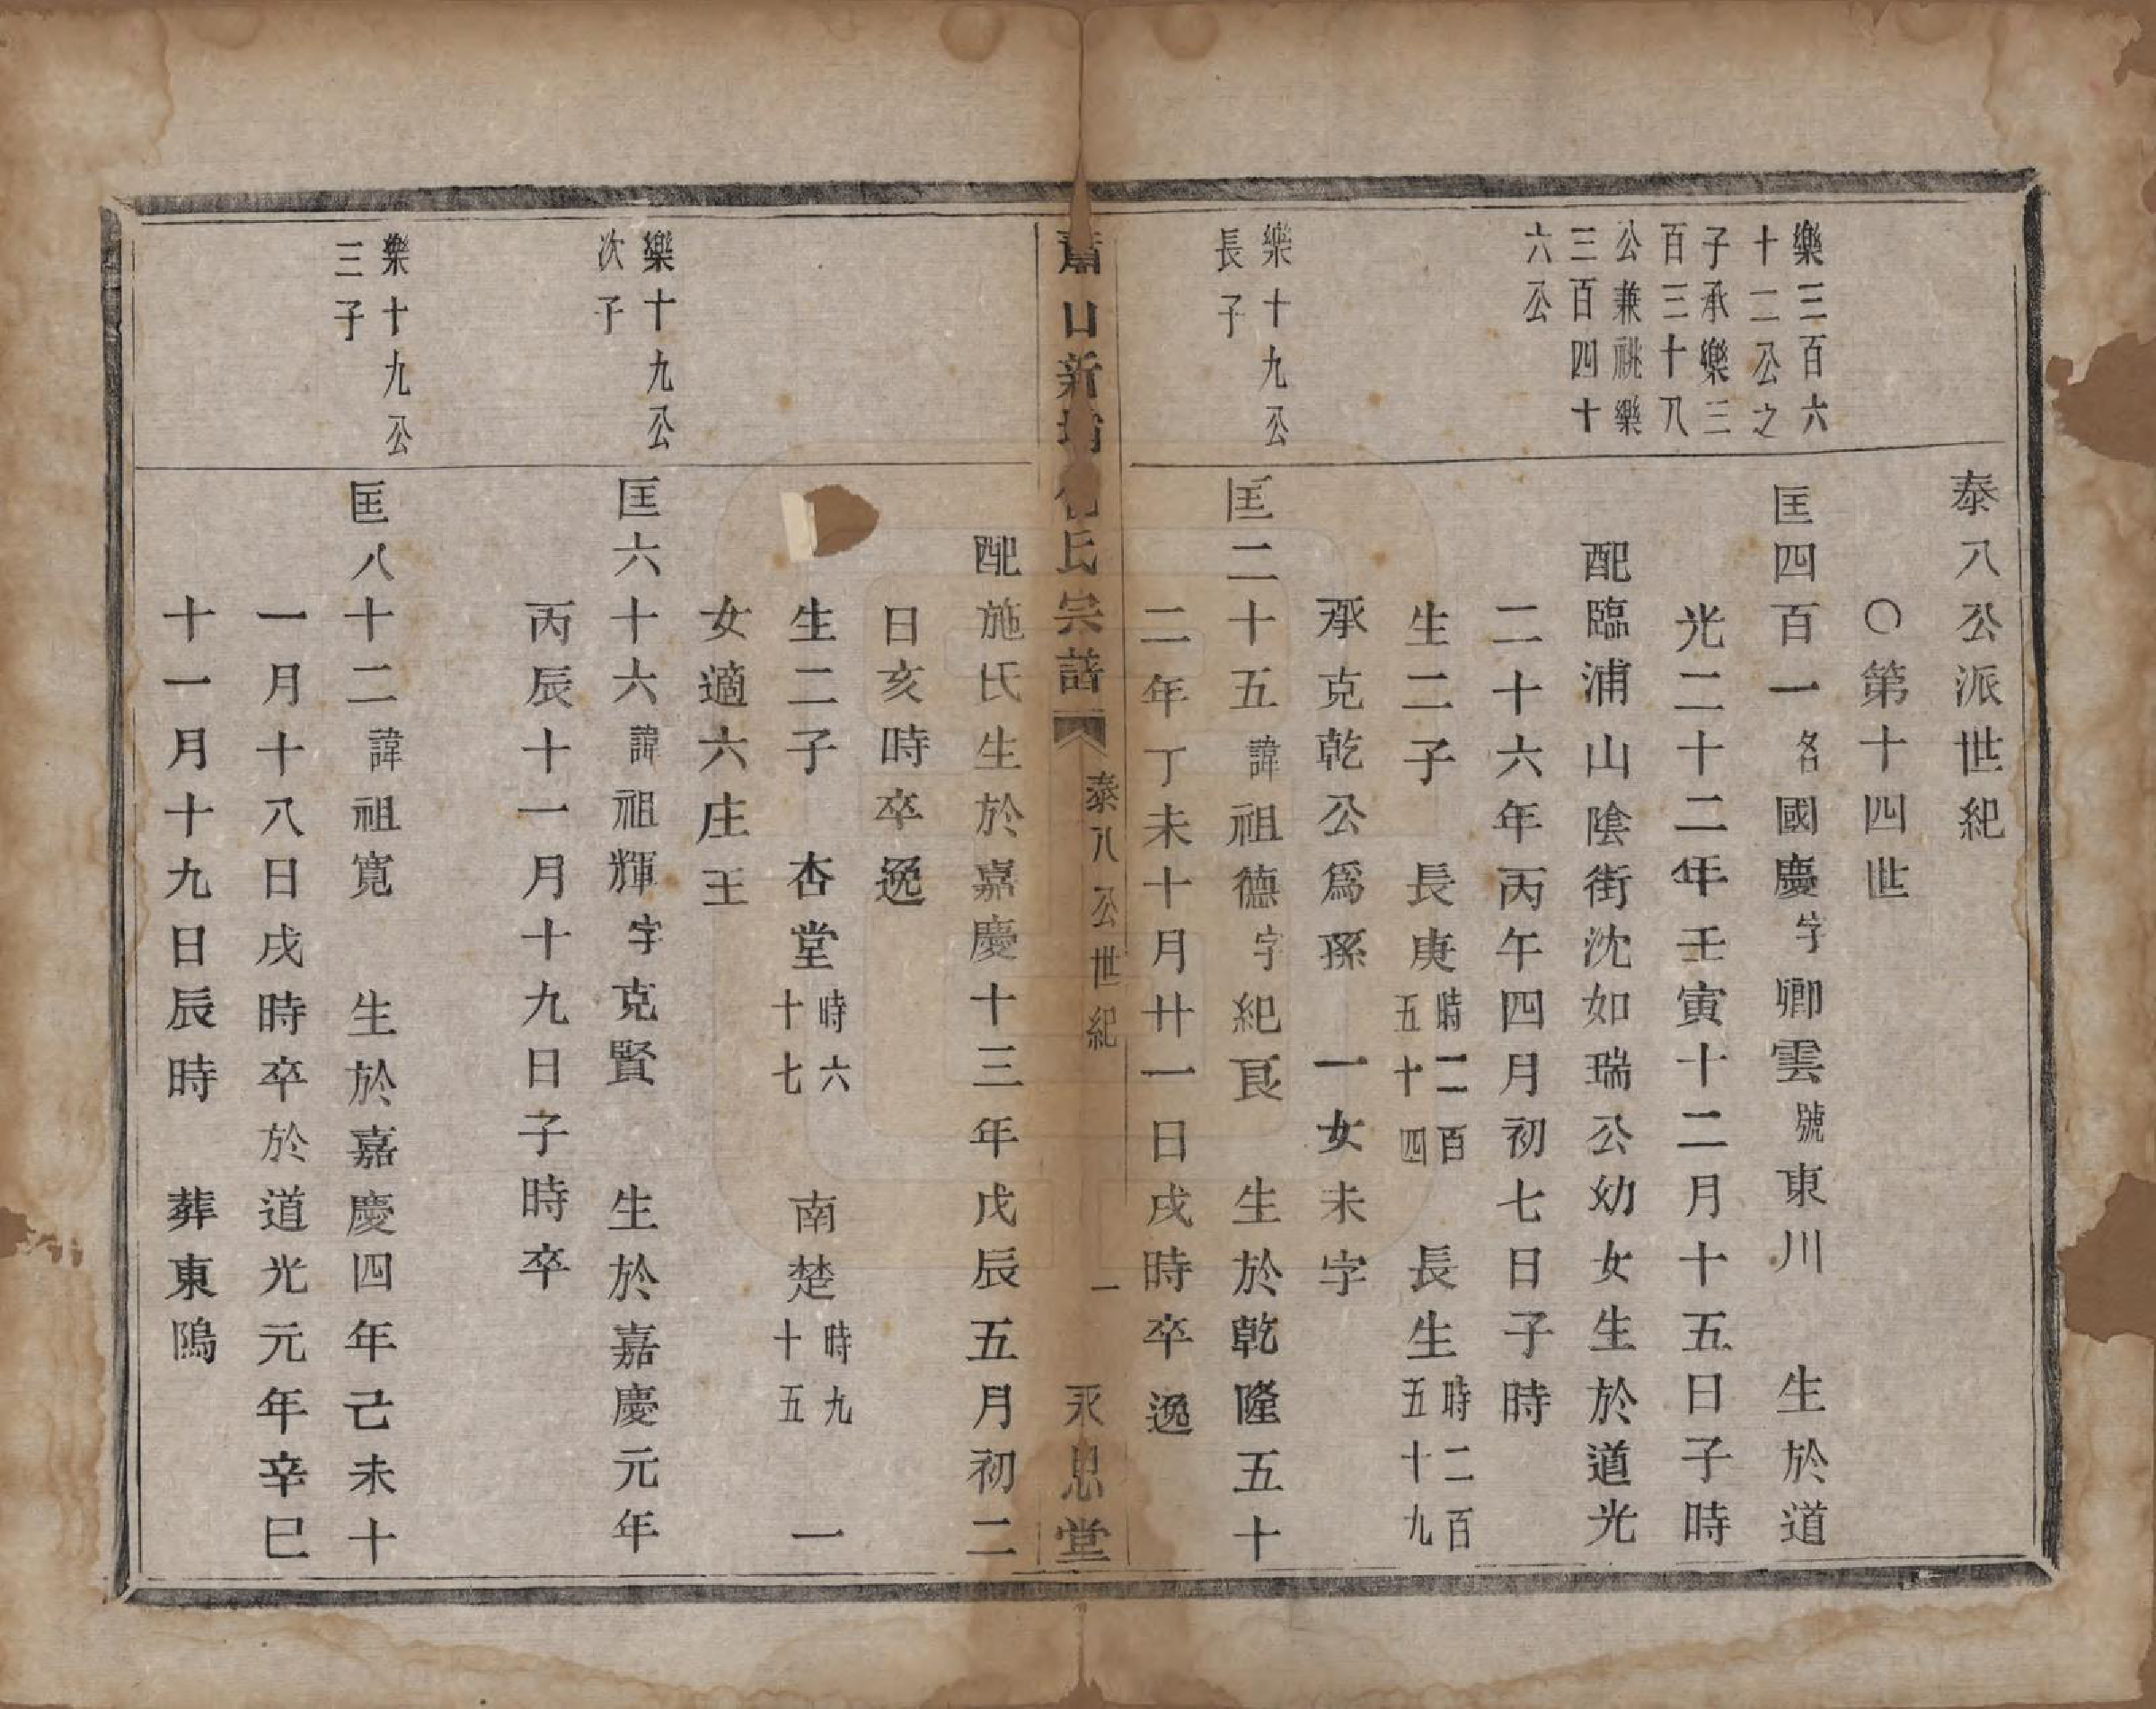 泰八公派世紀
〇第十四世
樂三百六
十二公之
子承樂三
百三十八
公兼祧樂
三百四十
六公
匡四百一名國慶字卿雲號東川 生於道
光二十二年壬寅十二月十五日子時
配臨浦山陰街沈如瑞公幼女生於道光
二十六年丙午四月初七日子時
生二子 長庚時二百五十四 長生時二百五十九
承克乾公爲孫 一女未字
樂十九公
長子
匡二十五諱祖德字紀良 生於乾隆五十
二年丁未十月廿一日戌時卒逸
蕭山新 氏宗譜 泰八公世紀 一 永思堂
配施氏生於嘉慶十三年戊辰五月初二
日亥時卒逸
生二子 杏堂時六十七 南楚時九十五 一
女適六庄王
樂十九公
次子
匡六十六諱祖輝字克賢 生於嘉慶元年
丙辰十一月十九日子時卒
樂十九公
三子
匡八十二諱祖寬 生於嘉慶四年己未十
一月十八日戌時卒於道光元年辛巳
十一月十九日辰時 葬東隖